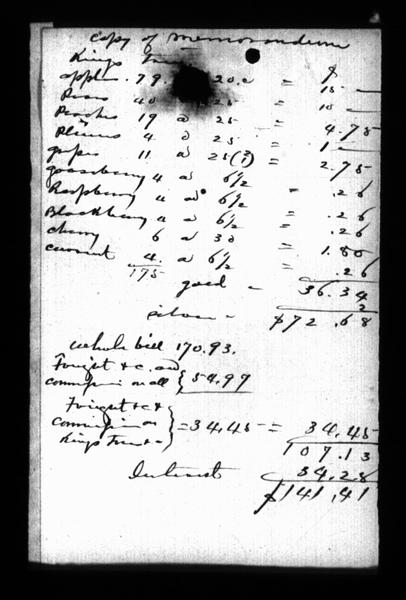 Copy of Memorandum
Kings Trees
apples . 79 . 20.c = $ 15 —
Pears 40 25 = 10 —
Peaches 19 @ 25 = 4.75
Plums 4 @ 25 = 1 —
grapes 11 @ 25 (?) = 2.75
gooseberry 4 @ 6 1/2 = .26
Raspberry 4 @ 6 1/2 = .26
Blackberry 4 @ 6 1/2 = .26
cherry 6 @ 30 = 1.80
currant 4 @ 6 1/2 = .26
175
gold - 36.34
2
silver - $72.68
whole bill 170.93.
Freight & c. and
commission on all } 54.97
Freight & c &
commission on
Kings Trees } = 34.45 = 34.45
107.13
Interest 34.28
$141.41